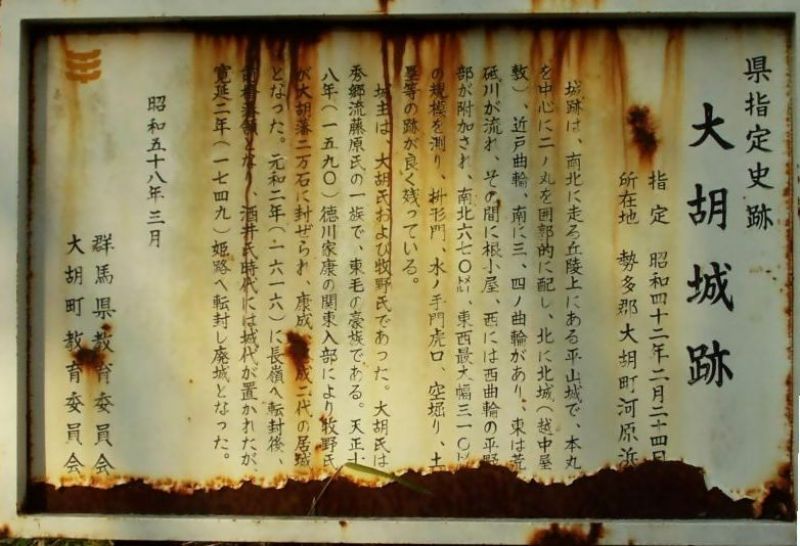 県指定史跡
大胡城跡
指定 昭和四十二年二月二十四日
所在地 勢多郡大胡町河原浜
城跡は、南北に走る丘陵上にある平山城で、本丸
を中心に二ノ丸を囲郭的に配し、北に北城(越中屋
敷)、近戸曲輪、南に三、四ノ曲輪があり、東は荒
砥川が流れ、その間に根小屋、西には西曲輪の平野
部が附加され、南北六七〇㍍、東西最大幅三一〇㍍
の規模を測り、枡形門、水ノ手門虎口、空堀り、土
塁等の跡が良く残っている。
城主は、大胡氏および牧野氏であった。大胡氏は
秀郷流藤原氏の一族で、東毛の豪族である。天正十
八年(一五九〇)徳川家康の関東入部により牧野氏
が大胡藩二万石に封ぜられ、康成 成二代の居城
となった。元和二年(一六一六)に長嶺へ転封後、
前橋藩領となり、酒井氏時代には城代が置かれたが、
寛延二年(一七四九)姫路へ転封し廃城となった。
昭和五十八年三月
群馬県教育委員会
大胡町教育委員会